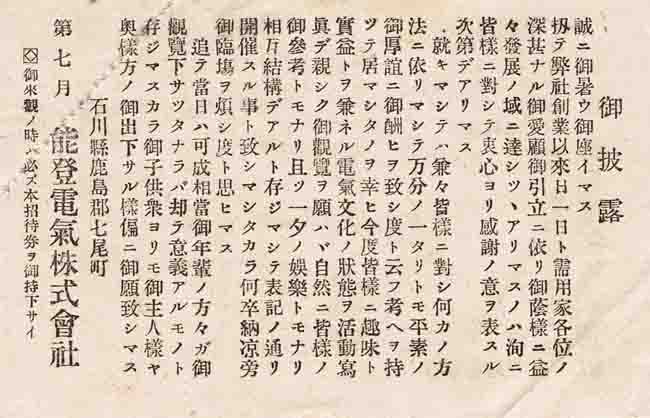 御披露
誠ニ御暑ウ御座イマス
扨テ弊社創業以來日一日ト需用家各位ノ
深甚ナル御愛顧御引立ニ依リ御蔭樣ニ益
々發展ノ域ニ達シツヽアリマスノハ洵ニ
皆樣ニ對シテ衷心ヨリ感謝ノ意ヲ表スル
次第デアリマス
就キマシテハ兼々皆樣ニ對シ何カノ方
法ニ依リマシテ万分ノ一タリトモ平素ノ
御厚誼ニ御酬ヒヲ致シ度ト云フ考ヘヲ持
ツテ居マシタノヲ幸ヒ今度皆樣ニ趣味ト
實益トヲ兼ネル電氣文化ノ狀態ヲ活動寫
眞デ親シク御觀覽ヲ願ハヾ自然ニ皆樣ノ
御參考トモナリ且ツ一夕ノ娛樂トモナリ
相斤結構デアルト存ジマシテ表記ノ通リ
開催スル事ト致シマシタカラ何卒納凉旁
御臨塲ヲ煩シ度ト思ヒマス
追テ當日ハ可成相當御年輩ノ方々ガ御
觀覽下サツタナラバ却テ意義アルモノト
存ジマスカラ御子供衆ヨリモ御主人樣ヤ
奧樣方ノ御出下サル樣偏ニ御願致シマス
石川縣鹿島郡七尾町
第七月 能登電氣株式會社
◇御來觀ノ時ハ必ズ本招待劵ヲ御持下サイ